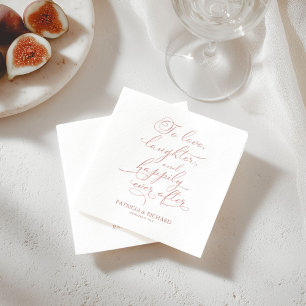 To love,
laughter,
and
happily
ever after
PATRICIA & RICHARD